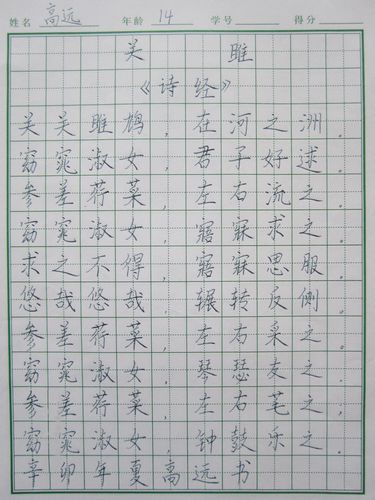 姓名 高远 年龄 14 学号 得分
关 雎
《诗经》
关关雎鸠，在河之洲。
窈窕淑女，君子好逑。
参差荇菜，左右流之。
窈窕淑女，寤寐求之。
求之不得，寤寐思服。
悠哉悠哉，辗转反侧。
参差荇菜，左右采之。
窈窕淑女，琴瑟友之。
参差荇菜，左右芼之；
窈窕淑女，钟鼓乐之。
辛卯年夏高远书